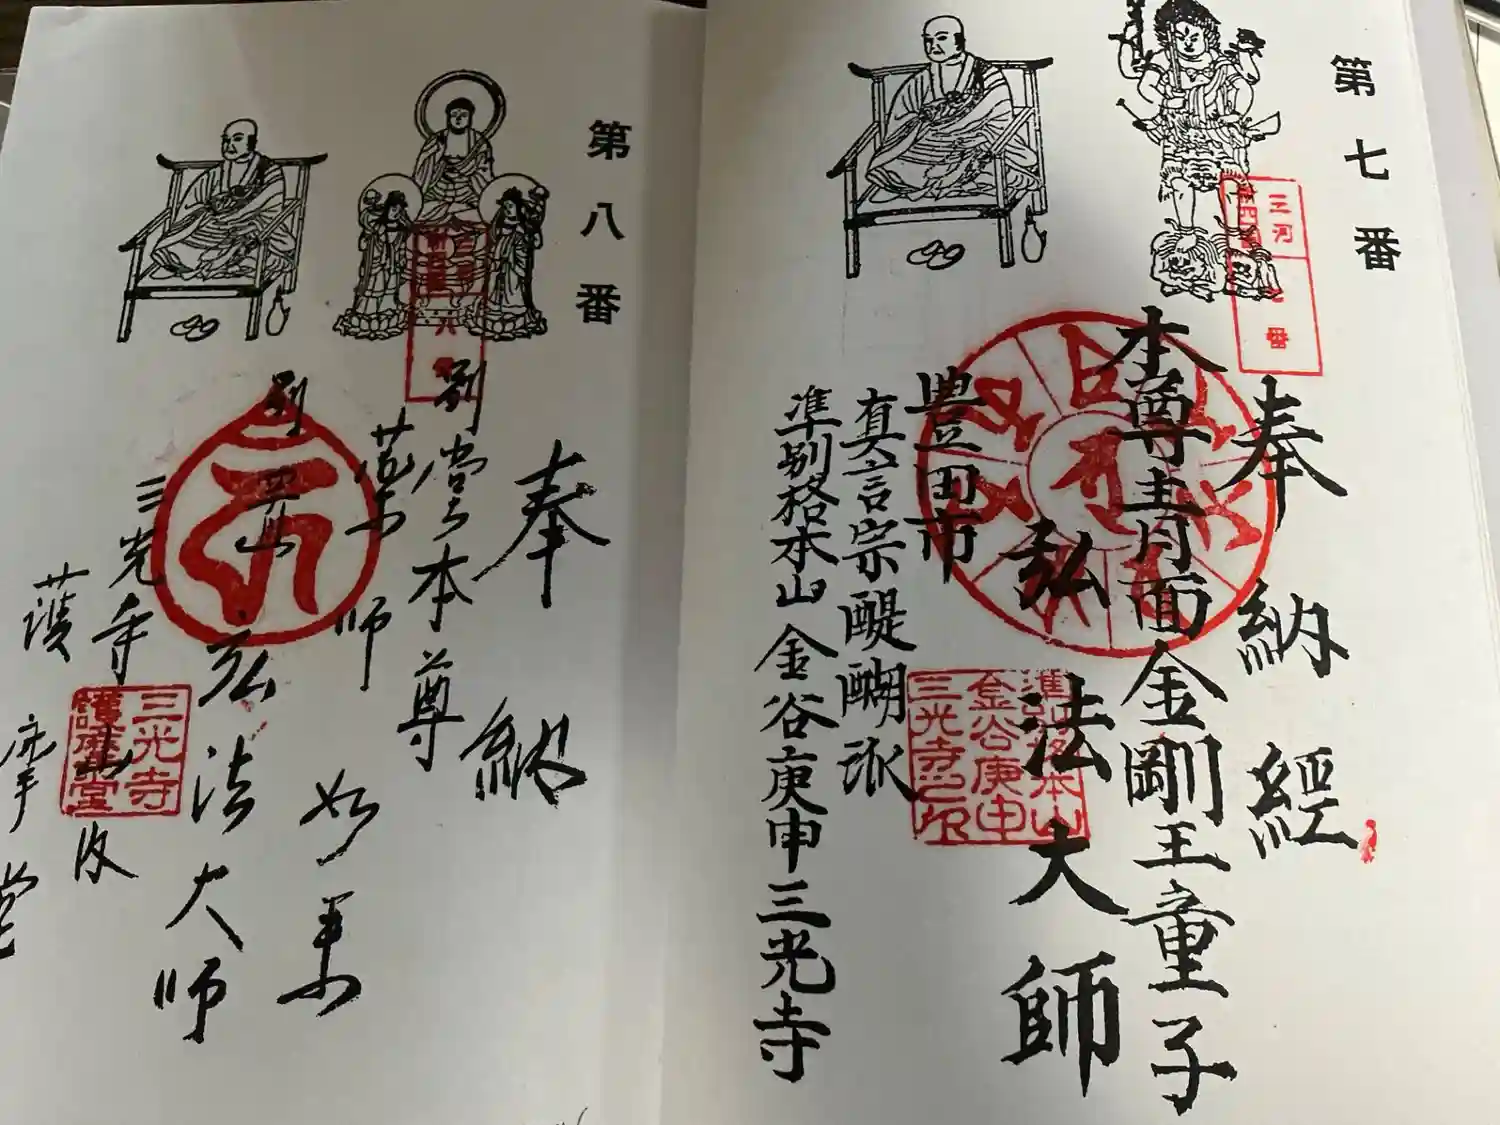 第七番
三河
七番
奉納經
本尊青面金剛王童子
弘法大師
豊田市
真言宗醍醐派
準別格本山 金谷庚申三光寺
準別格本山
金谷庚申
三光寺之印
第八番
八番
奉納
別堂本尊
薬師如来
弘法大師
三光寺
護摩堂
三光寺
護摩堂